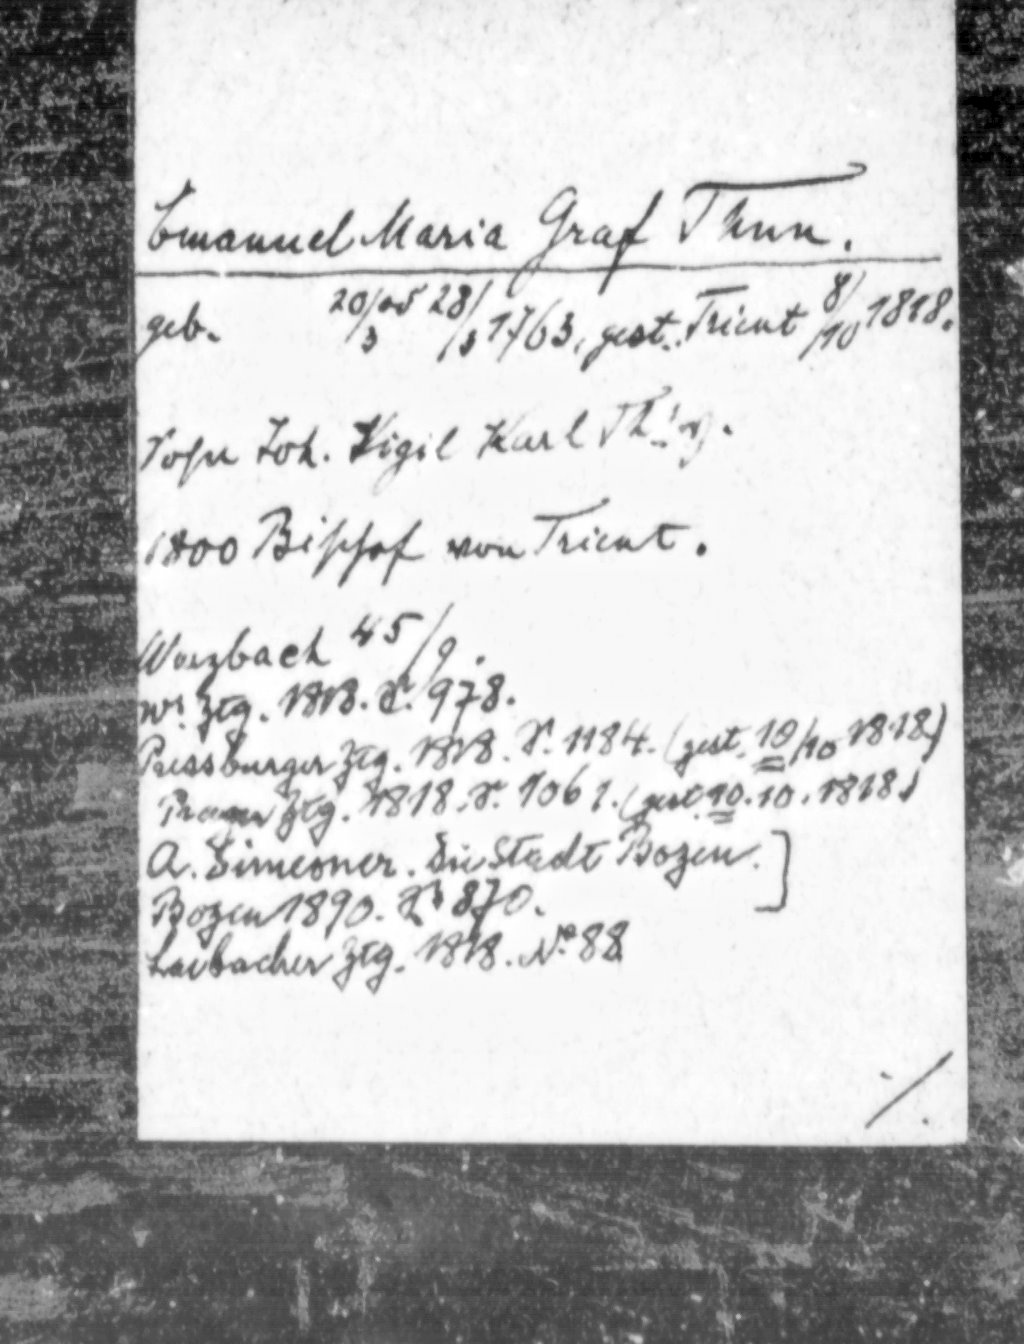 Emanuel Maria Graf Thun.
geb. 20/3 od 28/3 1763, gest. Trient 8/10 1818.
Sohn Joh. Vigil Karl Th's.
1800 Bischof von Trient.
Wurzbach 45/9.
Wr. Ztg. 1818. S. 978.
Pressburger Ztg. 1818. S. 1184. (gest. 10/10 1818)
Prager Ztg. 1818. S. 1061. (gest. 10.10.1818)
A. Simeoner. Die Stadt Bozen.
Bozen 1890. S. 870.
Laibacher Ztg. 1818. No. 88